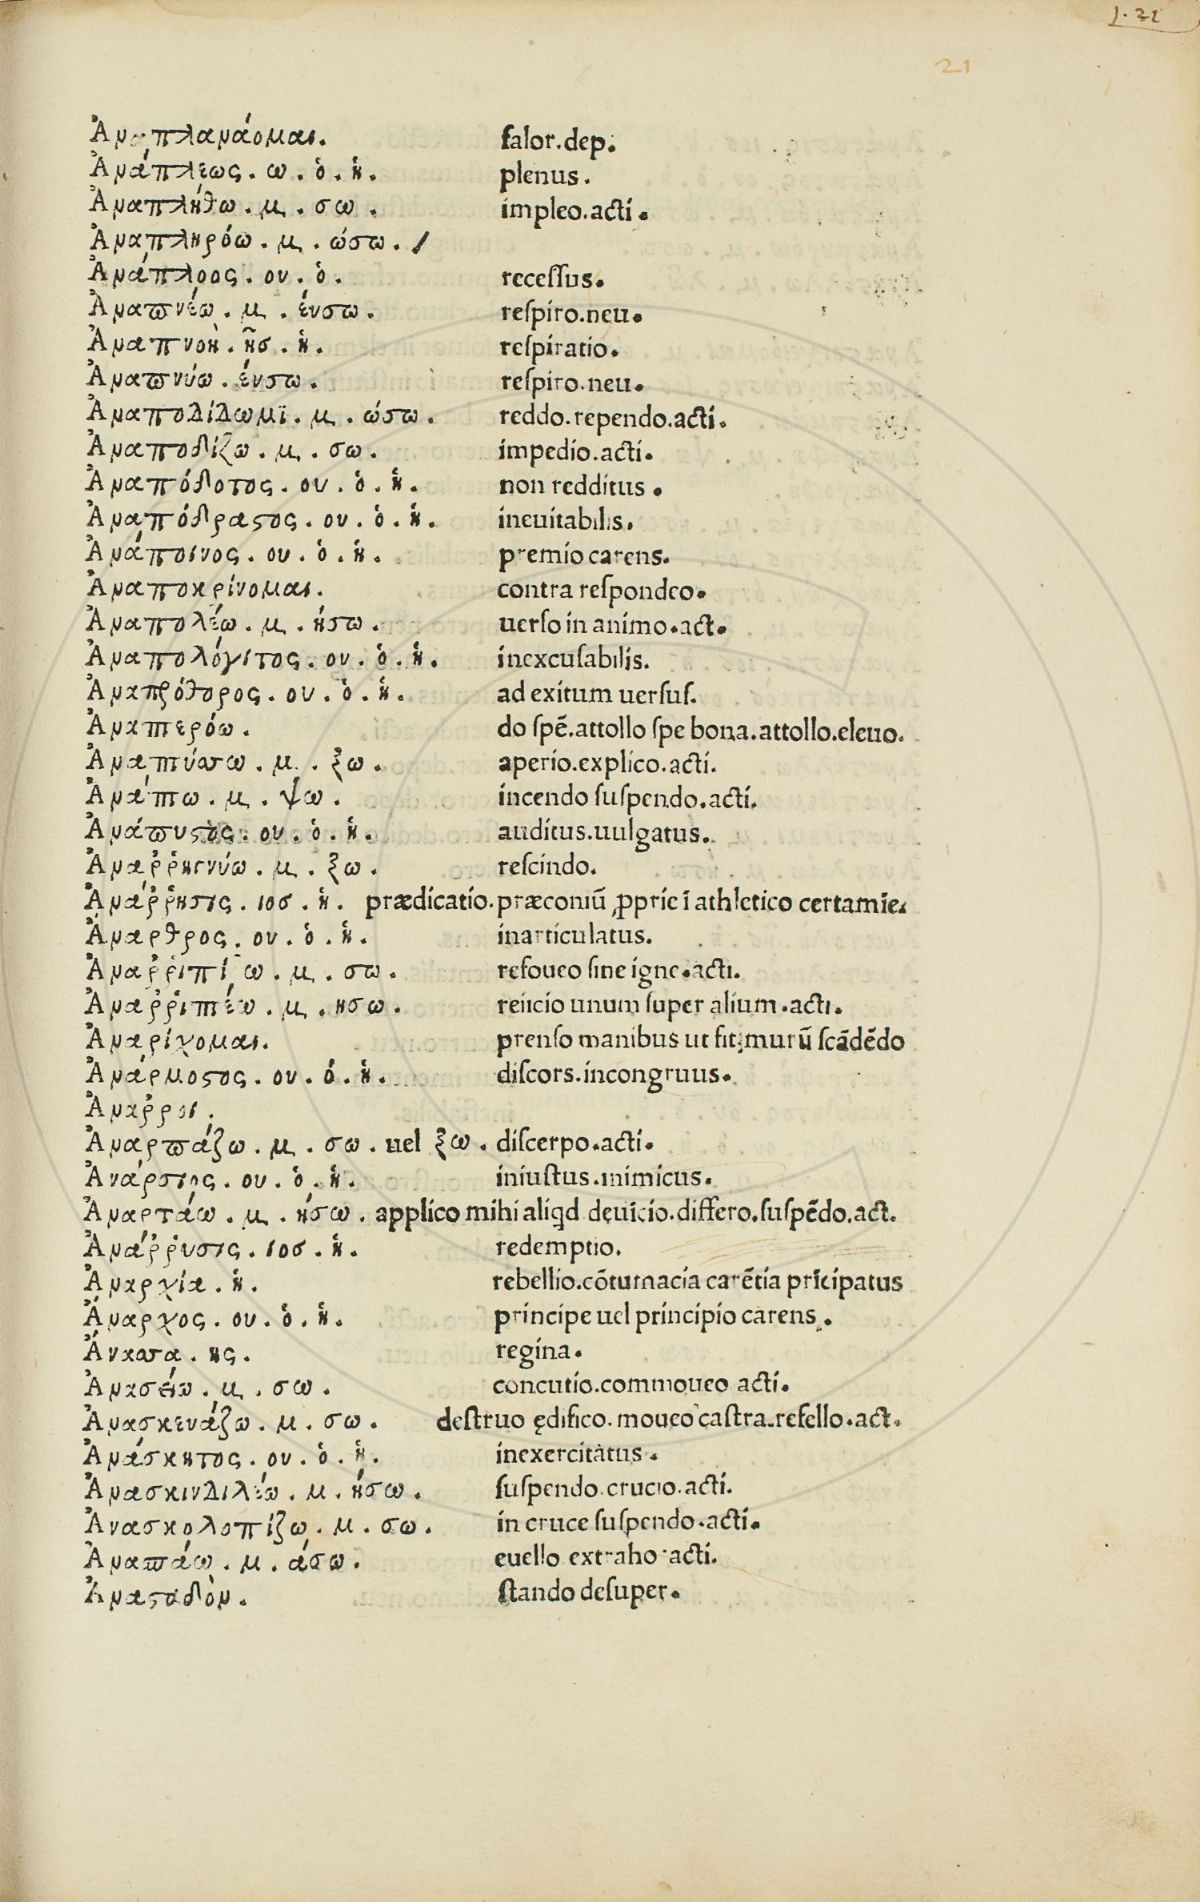 1·21
21
Ἀναπλανάομαι. falor.dep.
Ἀνάπλεως. ω. ὁ. ἡ. plenus.
Ἀναπλήθω. μ. σω. impleo.acti.
Ἀναπληρόω. μ. ώσω. /
Ἀνάπλοος. ου. ὁ. recessus.
Ἀναπνέω. μ. έυσω. respiro.neu.
Ἀναπνοὴ. ῆσ. ἡ. respiratio.
Ἀναπνύω. έυσω. respiro.neu.
Ἀναποδίδωμϊ. μ. ώσω. reddo.rependo.acti.
Ἀναποδίζω. μ. σω. impedio.acti.
Ἀναπόδοτος. ου. ὁ. ἡ. non redditus.
Ἀναπόδραστος. ου. ὁ. ἡ. ineuitabilis.
Ἀνάποινος. ου. ὁ. ἡ. premio carens.
Ἀναποκρίνομαι. contra respondeo.
Ἀναπολέω. μ. ήσω. uerso in animo.act.
Ἀναπολόγιτος. ου. ὁ. ἡ. inexcusabilis.
Ἀναπρόθορος. ου. ὁ. ἡ. ad exitum uersus.
Ἀναπτερόω. do spē.attollo spe bona.attollo.eleuo.
Ἀναπτύσσω. μ. ξω. aperio.explico.acti.
Ἀνάπτω. μ. ψω. incendo suspendo.acti.
Ἀνάπυστὸς. ου. ὁ. ἡ. auditus.uulgatus.
Ἀναῤῥηγνύω. μ. ξω. rescindo.
Ἀνάῤῥησις. ιοσ. ἡ. prædicatio.præconiū ꝓprie ī athletico certamīe.
Ἄναρθρος. ου. ὁ. ἡ. inarticulatus.
Ἀναῤῥιπίζω. μ. σω. refoueo sine igne.acti.
Ἀναῤῥιπτέω. μ. ησω. reiicio unum super alium.acti.
Ἀναρίχομαι. prenso manibus ut fit, murū scādēdo
Ἀνάρμοστος. ου. ὁ. ἡ. discors.incongruus.
Ἀναῤῥοι.
Ἀναρπάζω. μ. σω. uel ξω. discerpo.acti.
Ἀνάρσιος. ου. ὁ. ἡ. iniustus.inimicus.
Ἀναρτάω. μ. ήσω. applico mihi aliqd deuīcio.differo.suspēdo.act.
Ἀνάῤῥυσις. ιοσ. ἡ. redemptio.
Ἀναρχία. ἡ. rebellio.cōtumacia carētia prīcipatus
Ἄναρχος. ου. ὁ. ἡ. principe uel principio carens.
Ἄνασσα. ης. regina.
Ἀνασείω. μ. σω. concutio.commoueo acti.
Ἀνασκευάζω. μ. σω. destruo ędifico.moueo castra.refello.act.
Ἀνάσκητος. ου. ὁ. ἡ. inexercitatus.
Ἀνασκινδιλέω. μ. ήσω. suspendo.crucio.acti.
Ἀνασκολοπίζω. μ. σω. in cruce suspendo.acti.
Ἀνασπάω. μ. άσω. euello extraho acti.
Ἀναστοδὸν. stando desuper.